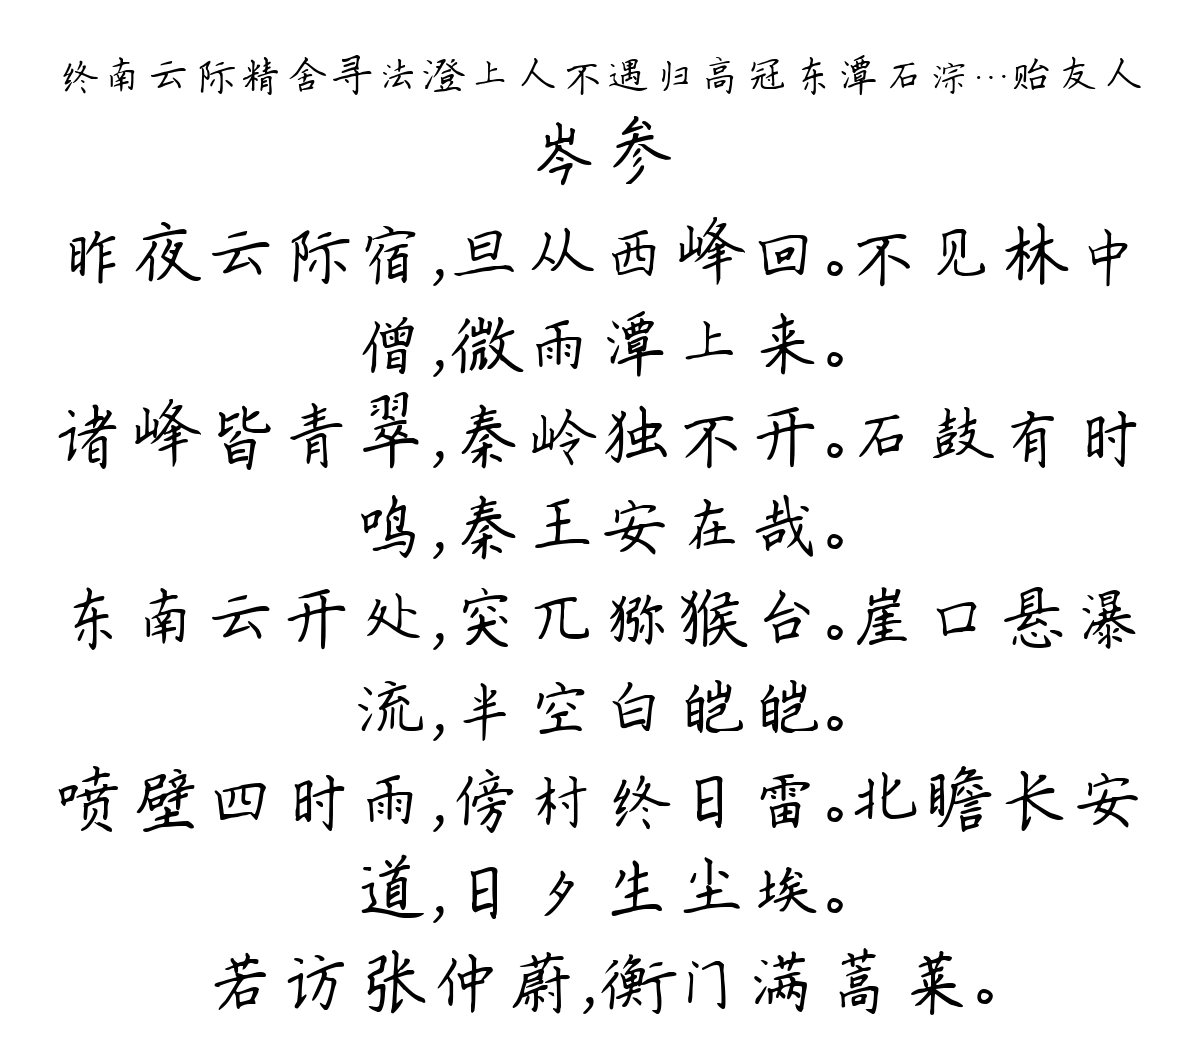 终南云际精舍寻法澄上人不遇归高冠东潭石淙…贻友人
岑参
昨夜云际宿,旦从西峰回。不见林中
僧,微雨潭上来。
诸峰皆青翠,秦岭独不开。石鼓有时
鸣,秦王安在哉。
东南云开处,突兀猕猴台。崖口悬瀑
流,半空白皑皑。
喷壁四时雨,傍村终日雷。北瞻长安
道,日夕生尘埃。
若访张仲蔚,衡门满蒿莱。